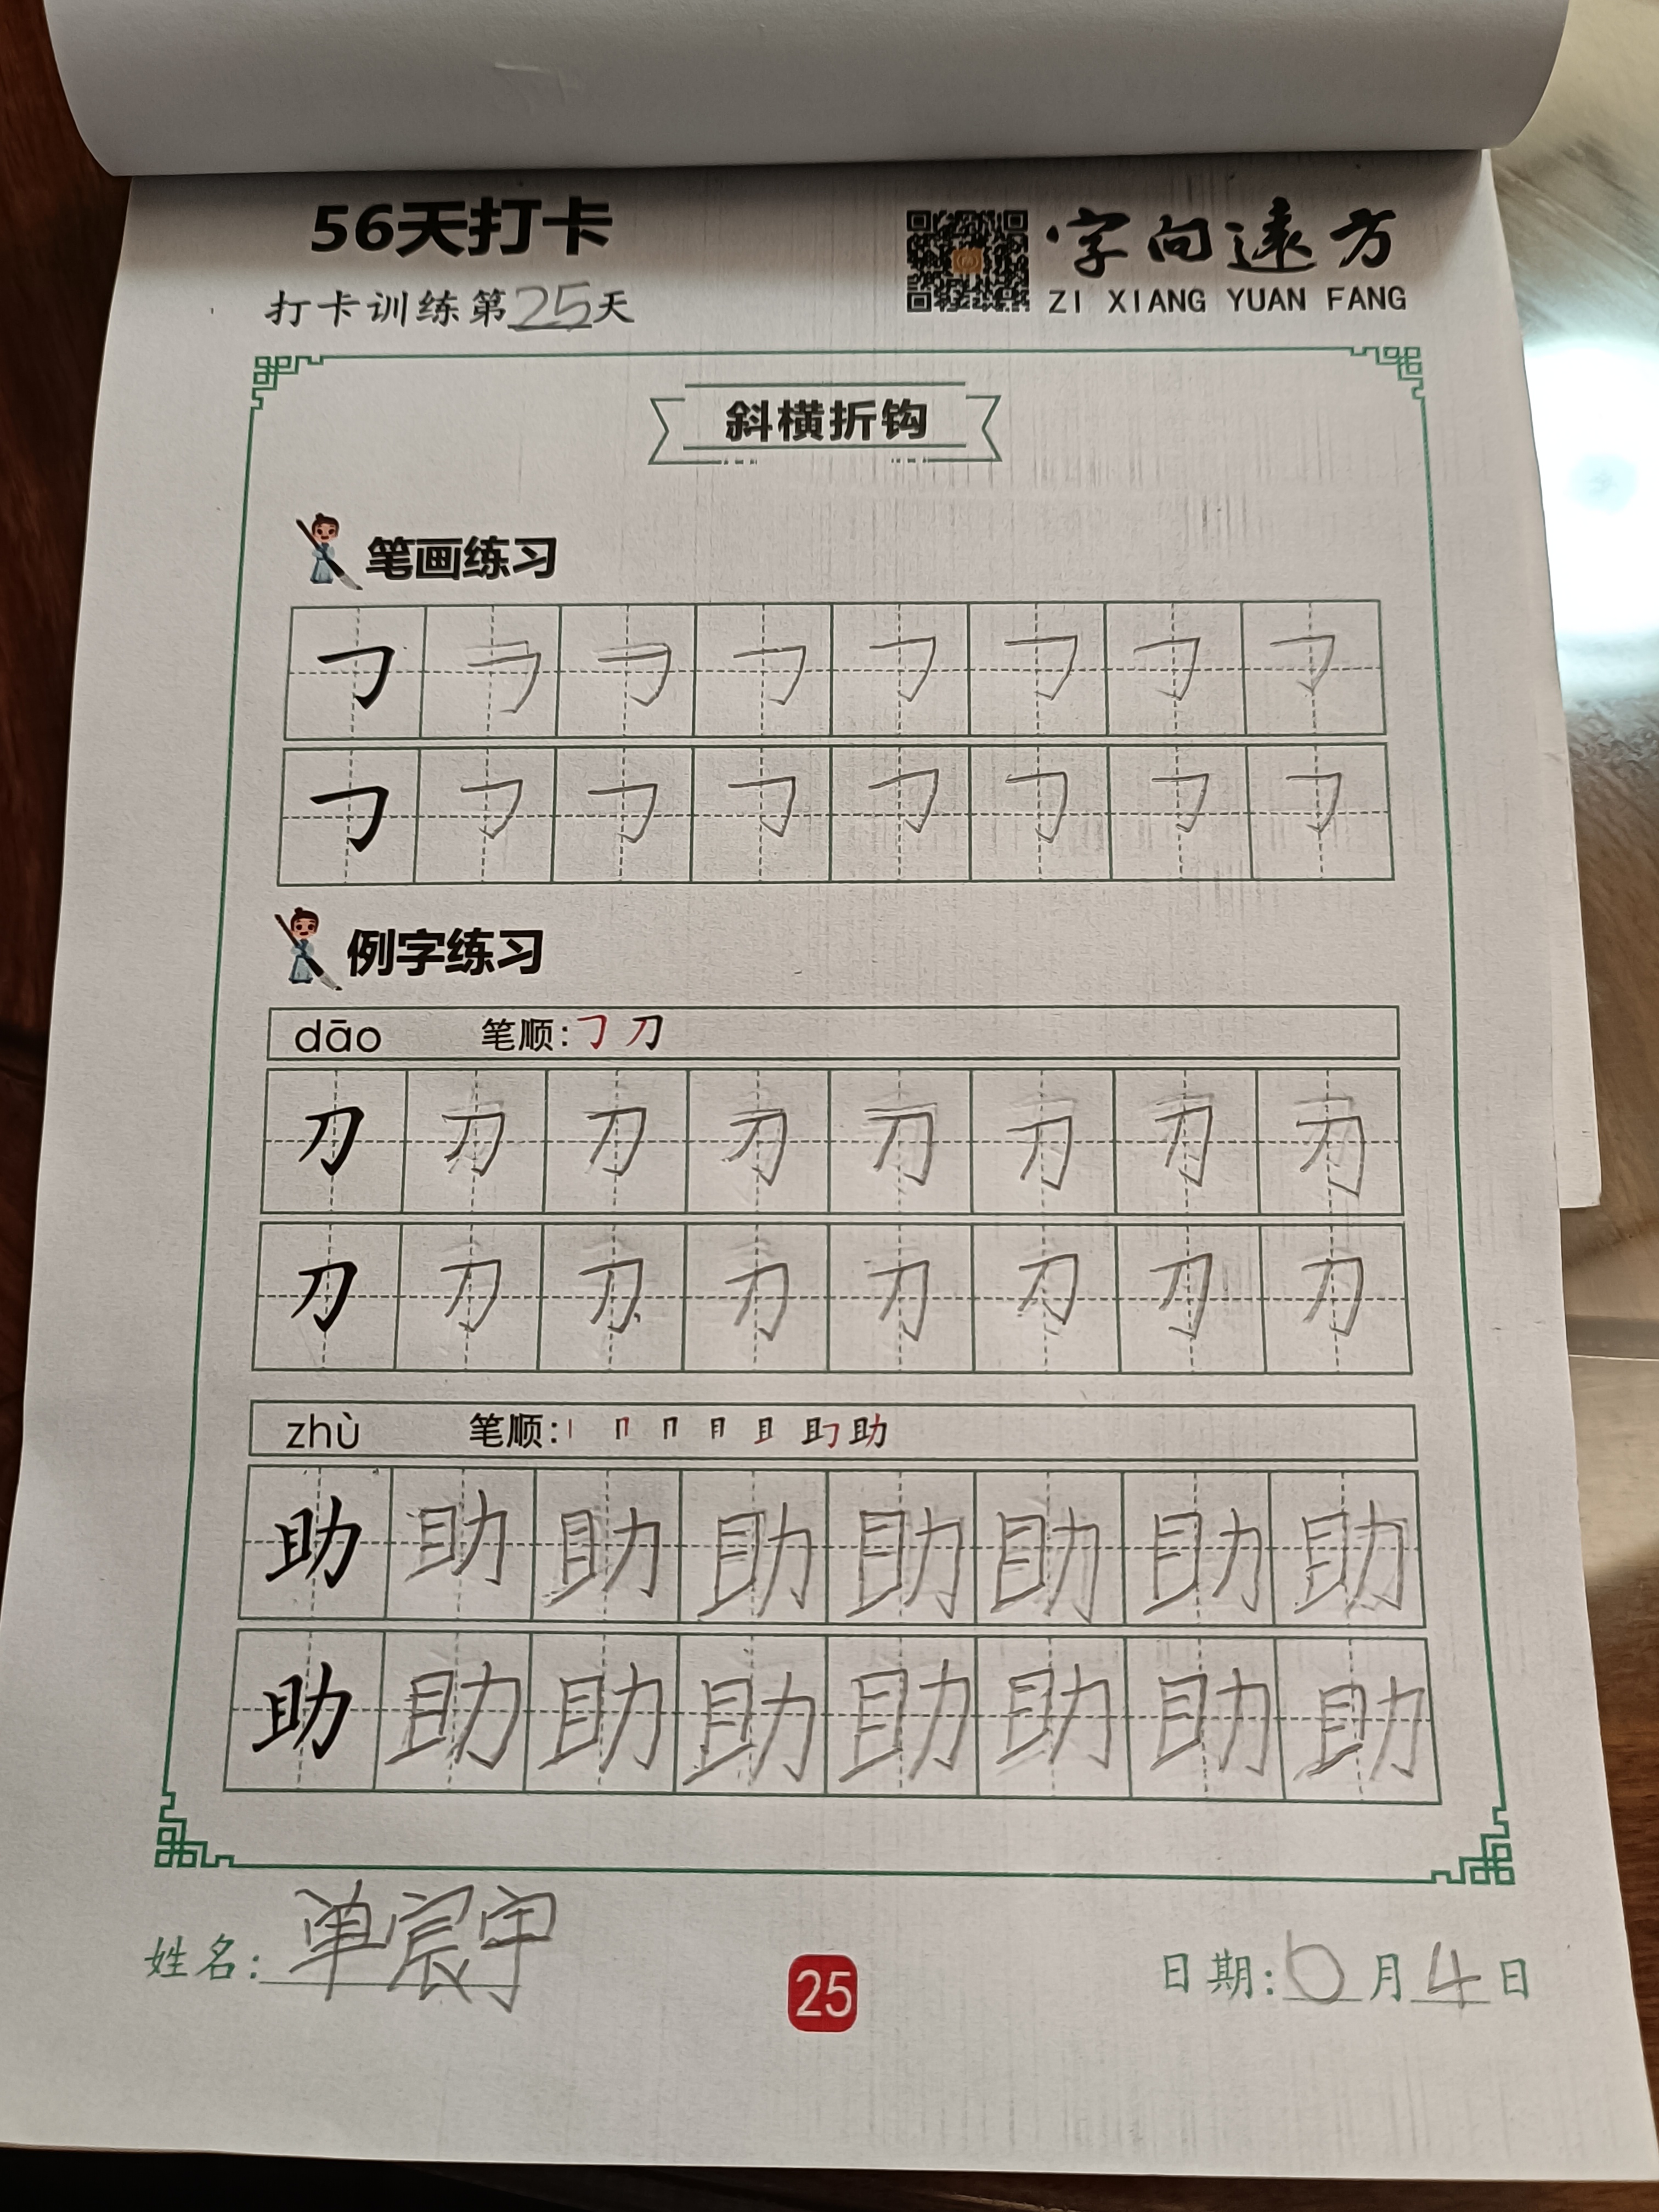 56天打卡
字向遠方
打卡训练第25天
ZI XIANG YUAN FANG
斜横折钩
笔画练习
㇆ ㇆ ㇆ ㇆ ㇆ ㇆ ㇆ ㇆
㇆ ㇆ ㇆ ㇆ ㇆ ㇆ ㇆ ㇆
例字练习
dāo 笔顺: ㇆ 刀
刀 刀 刀 刀 刀 刀 刀 刀
刀 刀 刀 刀 刀 刀 刀 刀
zhù 笔顺: 助
助 助 助 助 助 助 助 助
助 助 助 助 助 助 助 助
姓名: 单宸宇
25
日期: 月4日